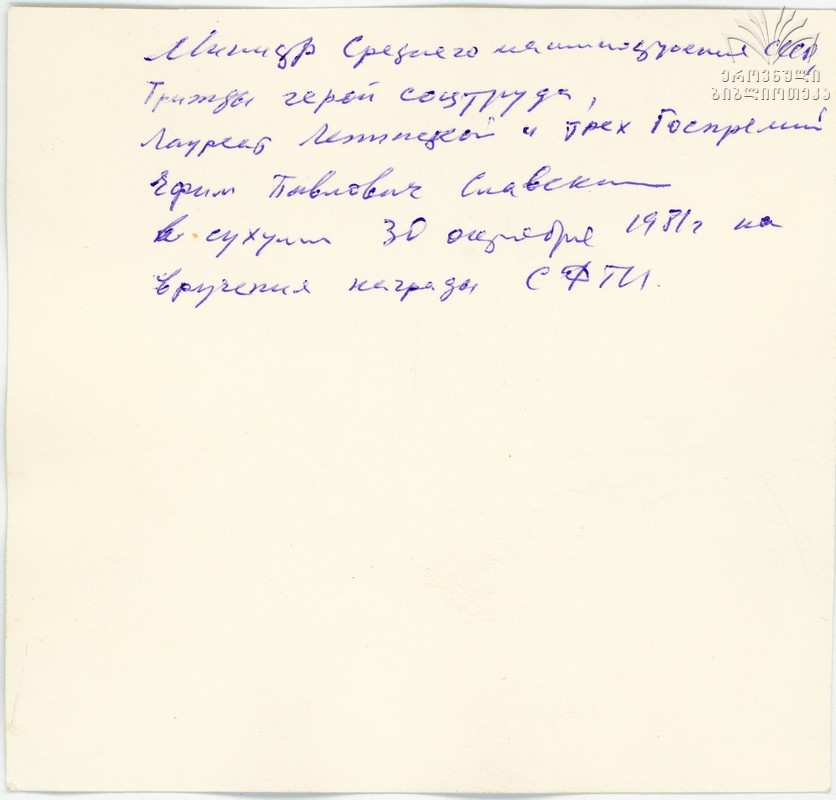 Министр Среднего машиностроения СССР,
ეროვნული
ბიბლიოთეკა
Трижды герой соцтруда,
Лауреат Ленинской и трех Госпремий
Ефим Павлович Славский
в сухуми 30 октября 1981г на
вручения награды СФТИ.